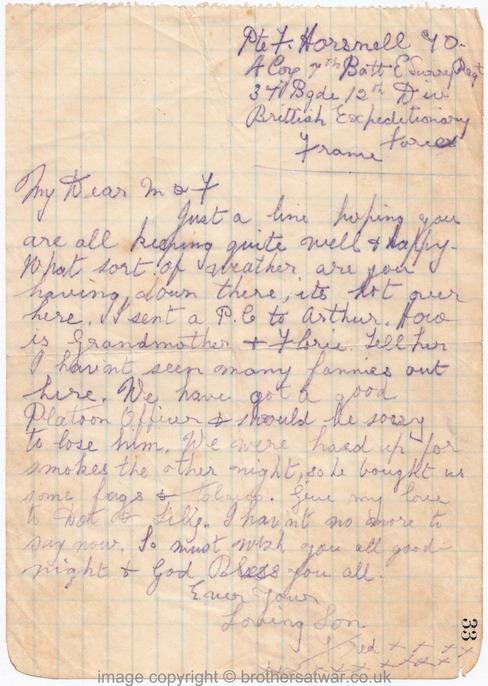 Pte F. Horsnell 70.
A Coy 7th Batt E Surrey Regt
37th Bgde 12th Div
Brittish Expeditionary
Forces
France
My Dear M & F
Just a line hoping you
are all keeping quite well & happy.
What sort of weather are you
having down there, its hot over
here. I sent a P.C to Arthur. How
is Grandmother & Florie. Tell her
I havn't seen many fannies out
here. We have got a good
Platoon Officer & should be sorry
to lose him. We were hard up for
smokes the other night, so he bought us
some fags & tobacco. Give my love
to Dot & Lily. I havn't no more to
say now. So must wish you all good-
night & God Bless you all.
Ever Your
Loving Son
Fred + + + + +
33
image copyright © brothersatwar.co.uk